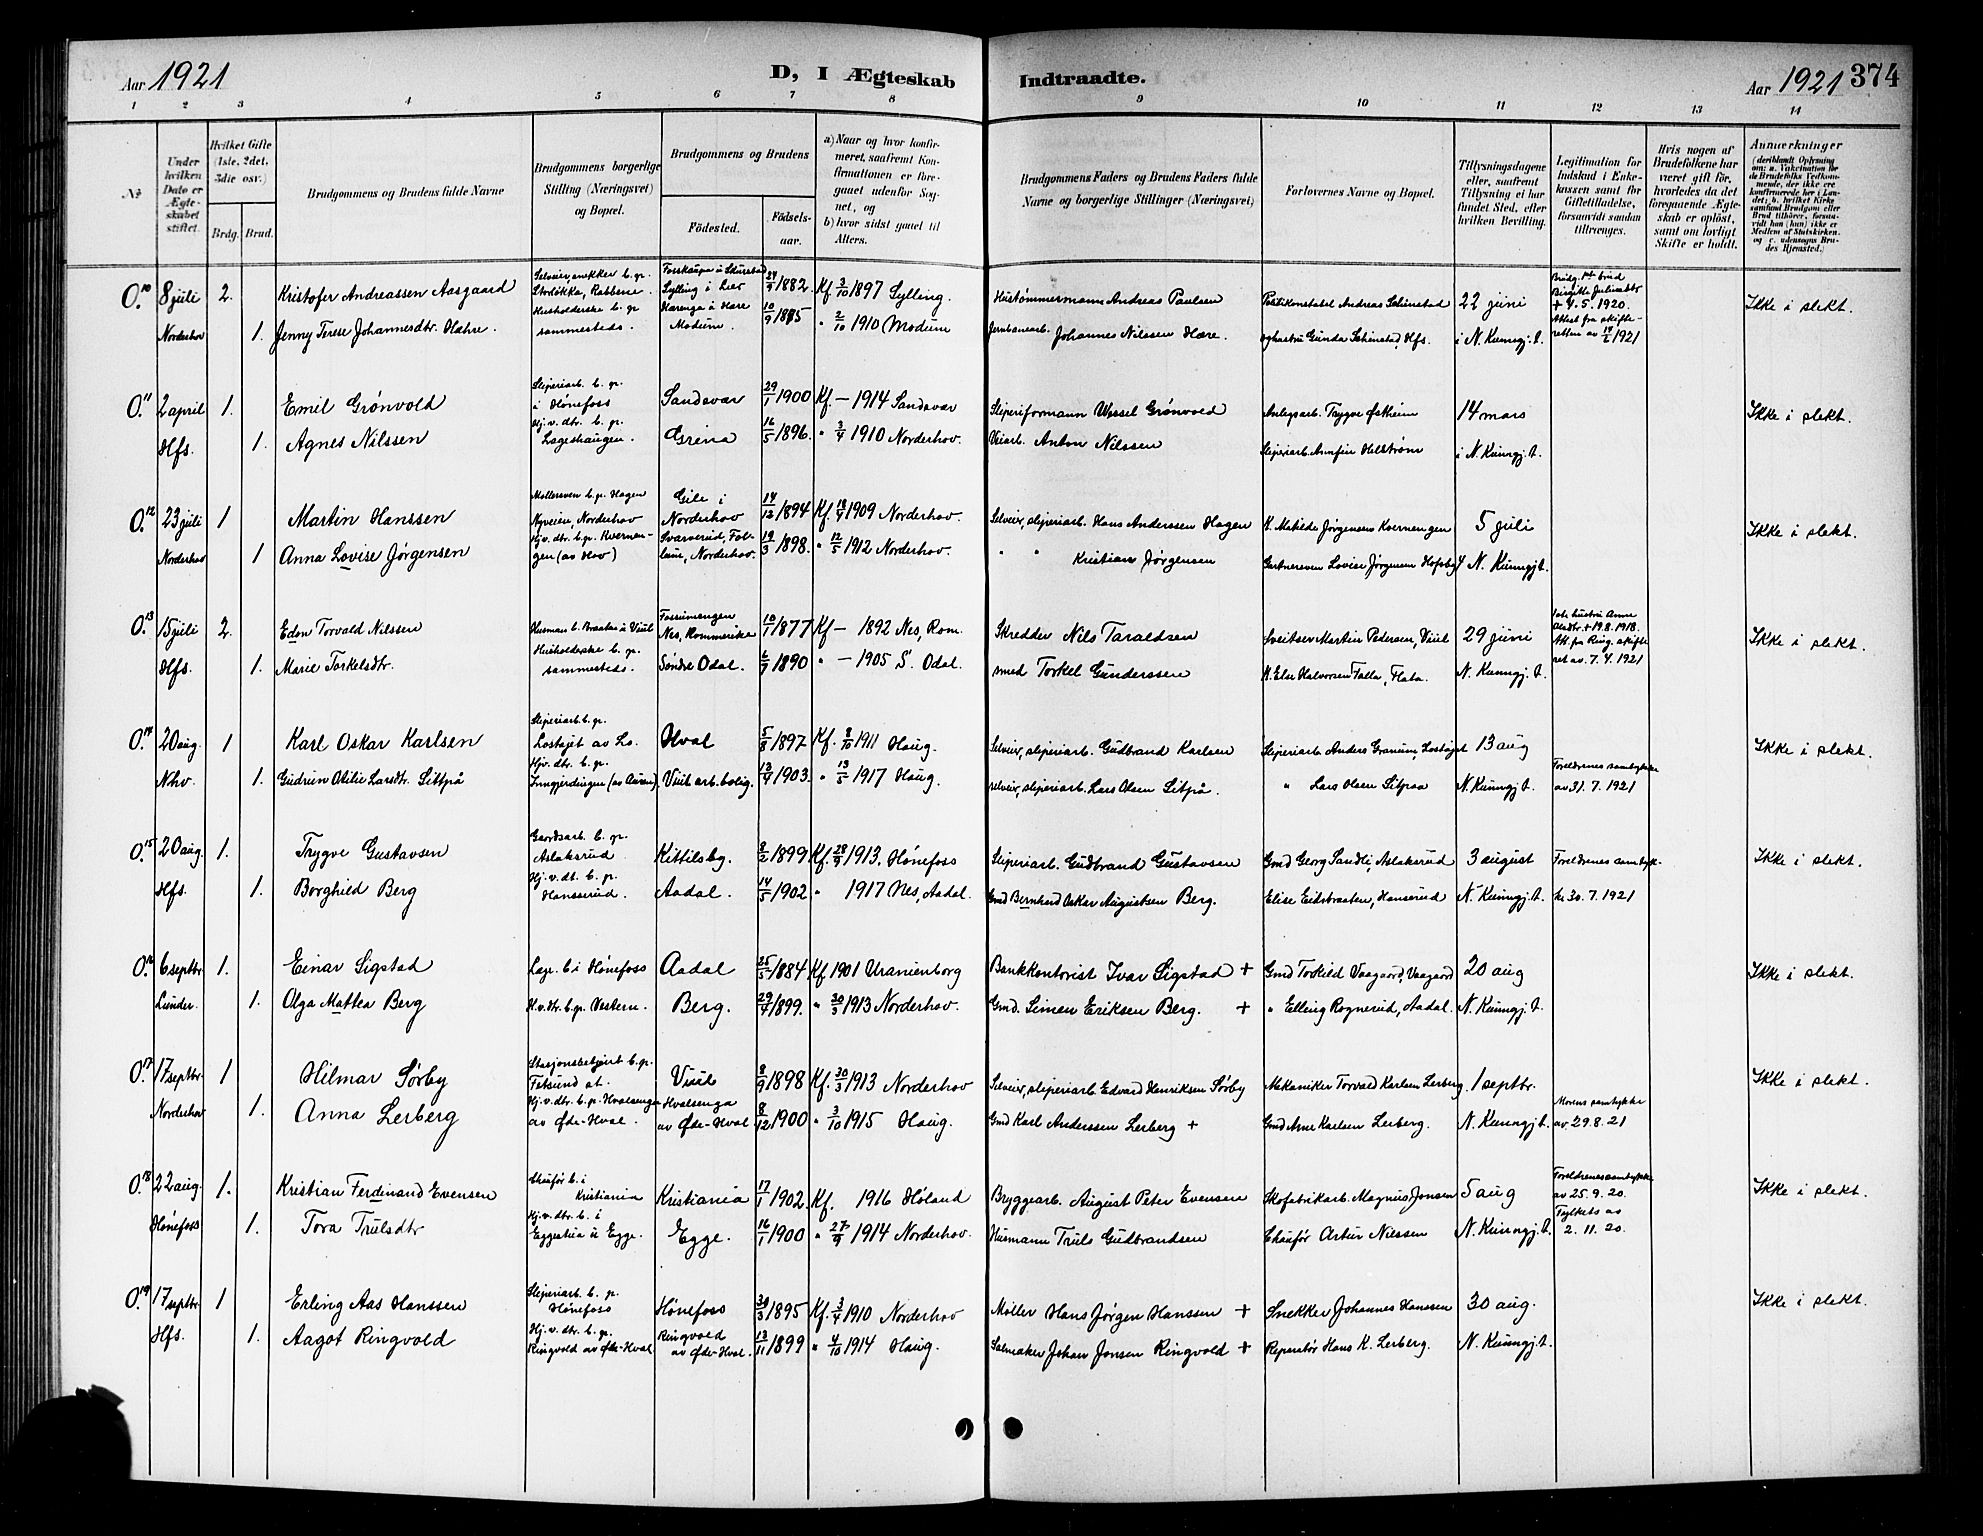 Aar 1921
D, I Ægteskab
Indtraadte.
Aar 1921 374
1 2 3 4 5 6 7 8 9 10 11 12 13 14
№
Under hvilken Dato er Ægteskabet stiftet.
Hvilket Gifte (1ste, 2det, 3die osv.)
Brdg. Brud.
Brudgommens og Brudens fulde Navne
Brudgommens borgerlige Stilling (Næringsvei) og Bopæl.
Brudgommens og Brudens
Födested.
Födselsaar.
a) Naar og hvor konfirmeret, saafremt Konfirmationen er foregaaet udenfor Sognet, og
b) hvor sidst gaaet til Alters.
Brudgommens Faders og Brudens Faders fulde Navne og borgerlige Stillinger (Næringsvei)
Forlovernes Navne og Bopæl.
Tillysningsdagene eller, saafremt Tillysning ei har fundet Sted, efter hvilken Bevilling.
Legitimation for Indskud i Enkekassen samt for Giftetilladelse, forsaavidt saadan tiltrænges.
Hvis nogen af Brudefolkene har været gift før, hvorledes da det foregaaende Ægteskab er oplöst, samt om lovligt Skifte er holdt.
Anmærkninger
0.10 8 juli 2. Kristofer Andreassen Aasgaard Sylling i Lier 24/9 1882. Kf. 3/10 1897 Sylling. Hustømmermann Andreas Paulsen Politikonstabel Andreas Schinstad 22 juni Ikke i slekt.
Birgitte + 4.5.1920.
Norderhov 1. Jenny Terese Johannesdtr. Hæhre. Husholderske b. p. sammesteds. Modum. 10/9 1895 " 2/10 1910 Modum Jernbanearb. Johannes Nilssen Hære. Gunda Schinstad, Hfs. i N. Kunngj. t. 1921
0.11 2 april 1. Emil Grønvold Sliperiarb. b. p. i Hönefoss Sandsvær 29/1 1900 Kf. – 1914 Sandsvær Sliperiformann Wessel Grönvold Anlegsarb. Trygve 14 mars Ikke i slekt.
Hfs. 1. Agnes Nilssen Hj. v. dtr. b. p. Lageshaugen. Grina 16/5 1896. " 3/4 1910 Norderhov. Veiarb. Anton Nilssen Sliperiarb. Arnfin Helström i N. Kunngj. t.
0.12 23 juli 1 Martin Hanssen Møllersven b. p. Hagen Nyveien, Norderhov Gile i Norderhov 14/12 1894 Kf. 1909 Norderhov. Selveier, sliperiarb. Hans Anderssen Hagen K. Matilde Jørgensens Kvernengen 5 juli Ikke i slekt.
Norderhov 1 Anna Lovise Jörgensen Hj. v. dtr. b. p. Kvernengen (av Hov) Svarverud, Follum, Norderhov. 19/3 1898. " 12/5 1912 Norderhov. " " Kristian Jørgensen Gartnersven Lovise Jørgensen N. Kunngj. t.
0.13 15 juli 2. Edon Torvald Nilssen Husmann b. Braaten u Viul Fossumengen Nes, Rommerike 10/1 1877 Kf – 1892 Nes, Rom. Skredder Nils Taraldsen Martin Pedersen, Viul 29 juni Ikke i slekt.
+ 19.8.1918. Att. fra Ring. skifteret av. 7.4.1921
Hfs. 1. Marie Torkelsdtr. Husholderske b. p. sammesteds. Søndre Odal. 6/7 1890 " – 1905 S. Odal. Smed Torkel Gunderssen K. Else Halvorsen Falla, Flaba. N. Kunngj. t.
0.14 20 aug. 1 Karl Oskar Karlsen Sliperiarb. b. p. Lostøjet av Lo. Hval 5/8 1897 Kf. 8/10 1911 Haug. Selveier, sliperiarb. Gudbrand Karlsen Sliperiarb Anders Granum, Lostøjet 13 aug Ikke i slekt.
Nhv. 1. Gudrun Otilie Larsdtr. Sitpå Hjv. dtr. b. p. Viul arb. bolig. 13/4 1903. " 13/5 1917 Haug. selveier, sliperiarb. Lars Olsen Sitpå. " Lars Olsen Sitpaa N. Kunngj. t. Foreldrenes samtykke av 31.7.1921
0.15 20 aug. 1. Trygve Gustavsen Gaardsarb. b. p. Aslaksrud Kittilsby. 8/2 1899 Kf. 28/9 1913. Hönefoss Sliperiarb. Gudbrand Gustavsen Gmd Georg Sandli, Aslaksrud 3 august Foreldrenes samtyk- Ikke i slekt.
Hfs. 1. Borghild Berg Hj. v. dt. b. p. Hansserud. Aadal. 14/5 1902. " 1917 Nes, Aadal. Gmd Bernhard Oskar Augustsen Berg. Elise Eidsbraaten, Hanserud N. Kunngj. t. ke 30.7.1921
0.16 6 septbr. 1. Einar Sigstad Lage. b i Hönefoss Aadal 25/5 1884 Kf 1901 Uranienborg Bankkontorist Ivar Sigstad + Gmd Torkild Vaagaard, Vaagaard 20 aug Ikke i slekt.
Lunder. 1. Olga Mattea Berg H. v. dtr. b. p. Vestern. Berg. 29/7 1899. " 30/3 1913 Norderhov. Gmd. Simen Eriksen Berg. + " Elling Rognerud, Aadal. N. Kunngj. t.
0.17 17 septbr. 1 Hilmar Sörby Stasjonsbetjent b. p. Fetsund st. Viul 8/9 1898 Kf. 30/3 1913 Norderhov Selveier, sliperiarb. Edvard Henriksen Sörby Mekaniker Torvald Karlsen Lerberg. 1 septbr. Ikke i slekt.
Norderhov 1. Anna Lerberg Hj. v. dtr. b. p. Hvalsenga av Øde-Hval. Hvalsenga av Øde-Hval 8/12 1900 " 3/10 1915 Haug. Gmd Karl Anderssen Lerberg + Gmd Arne Karlsen Lerberg. N. Kunngj. t. Morens samtykke av 29.8.21
0.18 22 aug. 1. Kristian Ferdinand Evensen Chauför b. i Kristiania Kristiania 17/1 1902. Kf. 1916 Höland Bryggearb. August Peter Evensen Skofabrikarb. Magnus Jonsen 5 aug Foreldrenes samtykke av 25.9.20. Ikke i slekt.
Hönefoss 1. Tora Trulsdtr Hj. v. dtr. b. i Eggestua u Egge. Egge. 16/1 1900 " 27/9 1914 Norderhov. Husmann Truls Gudbrandsen Chauför Artur Nilssen N. Kunngj. t. Fylkets av 2.11.20.
0.19 17 septbr. 1 Erling Aas Hanssen Sliperiarb. b. p. Hönefoss Hönefoss 30/3 1895 Kf. 3/4 1910 Norderhov Møller Hans Jörgen Hanssen + Snekker Johannes Hanssen 30 aug. Ikke i slekt.
Hfs. 1. Aagot Ringvold Hj. v. dtr. b. p. Ringvold av Øde-Hval Ringvold av Øde-Hval. 13/11 1899 " 4/10 1914 Haug. Salmaker Johan Jonsen Ringvold + Reparatör Hans K. Lerberg. N. Kunngj. t.